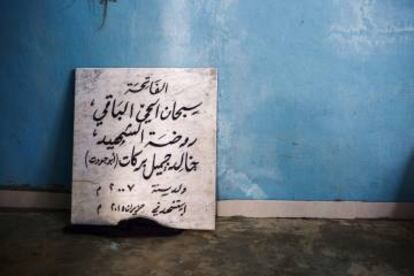 الفاتحة
سبحان الحي الباقي،
روضة الشهيد،
خالد جميل بركات (أبو جودت)
ولد سنة ٢٠٠٧ م
استشهد في حزيران ٢٠١٥ م